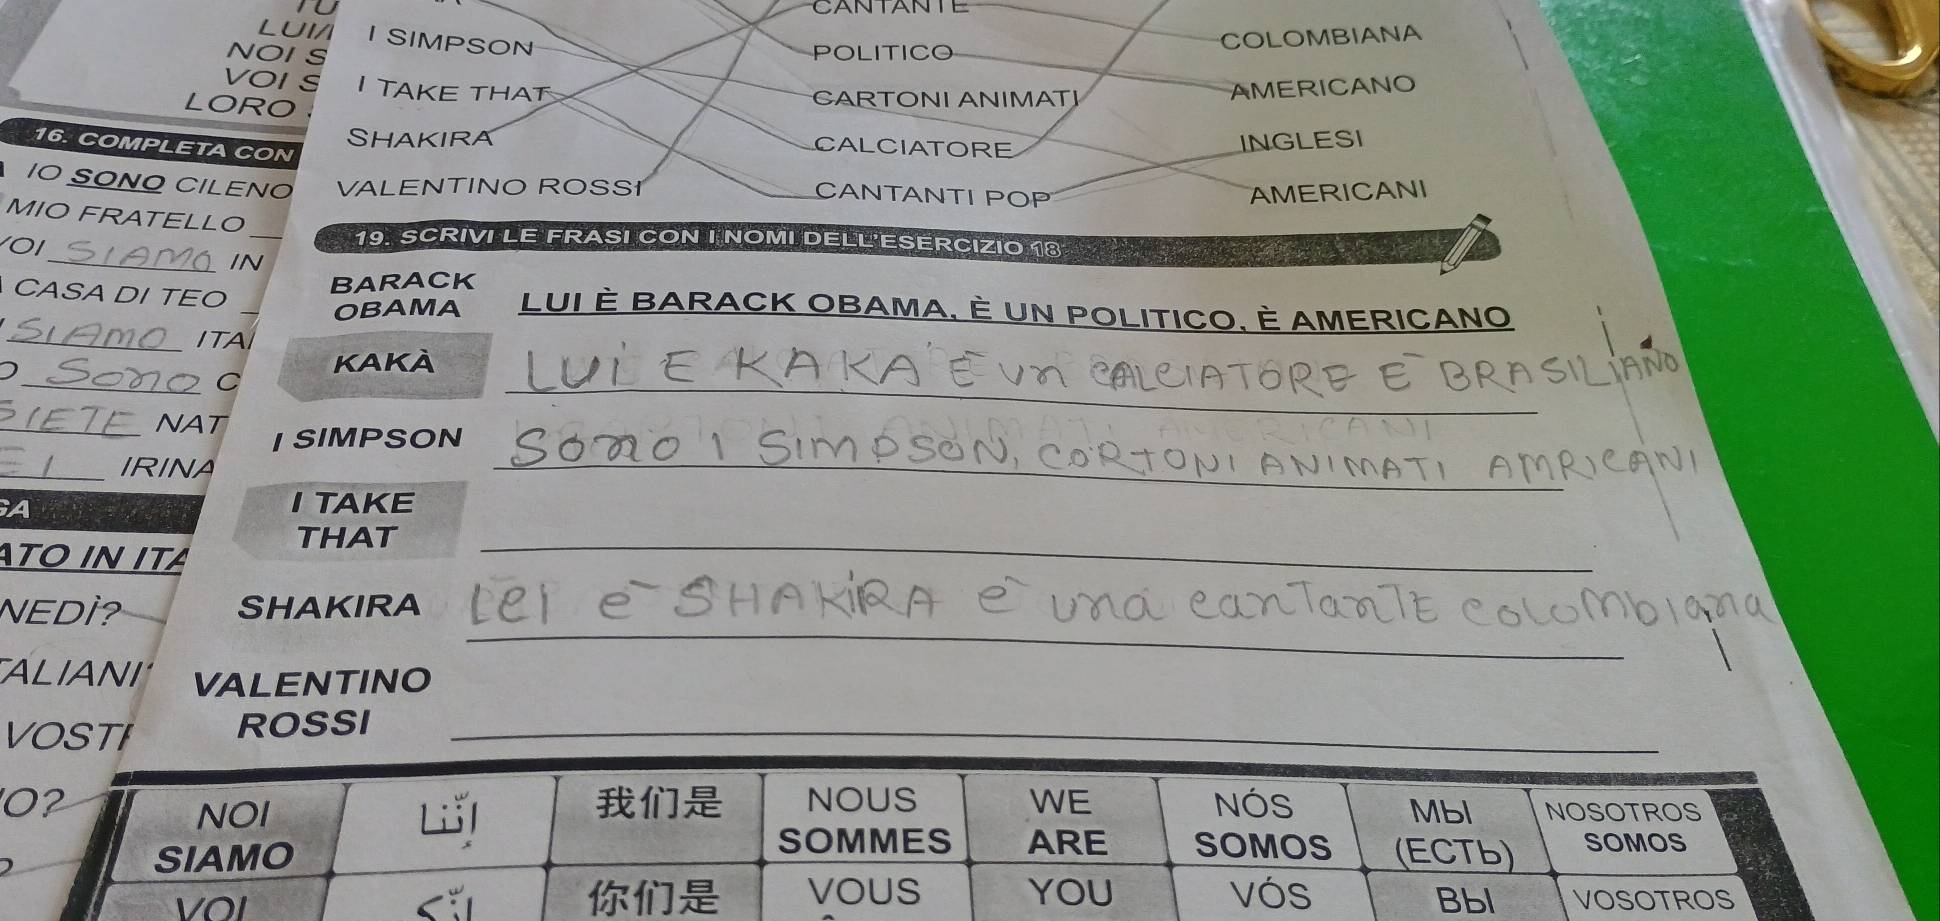 TU
LUI/
NOI S
VOI S
LORO
16. COMPLETA CON
IO SONO CILENO
MIO FRATELLO
VOI SIAMO IN
CASA DI TEO
SIAMO ITA
SONO C
SIETE NAT
EI IRINA
GA
ATO IN ITA
NEDÌ?
TALIANI
VOSTR
IO?
CANTANTE
I SIMPSON POLITICO COLOMBIANA
I TAKE THAT CARTONI ANIMATI AMERICANO
SHAKIRA CALCIATORE INGLESI
VALENTINO ROSSI CANTANTI POP AMERICANI
19. SCRIVI LE FRASI CON I NOMI DELL'ESERCIZIO 18
BARACK
OBAMA LUI È BARACK OBAMA, È UN POLITICO, È AMERICANO
KAKÀ LUI E KAKA' E Un CALCIATORE E BRASILIANO
I SIMPSON Sono I SIMPSON, CORTONI ANIMATI AMRICANI
I TAKE
THAT
SHAKIRA Lei e SHAKIRA e una canTanTE colombiana
VALENTINO
ROSSI
NOI SIAMO إنّنا 我们是 NOUS SOMMES WE ARE NÓS SOMOS МЫ (ЕСТЬ) NOSOTROS SOMOS
VOI 你们是 VOUS YOU VÓS ВЫ VOSOTROS